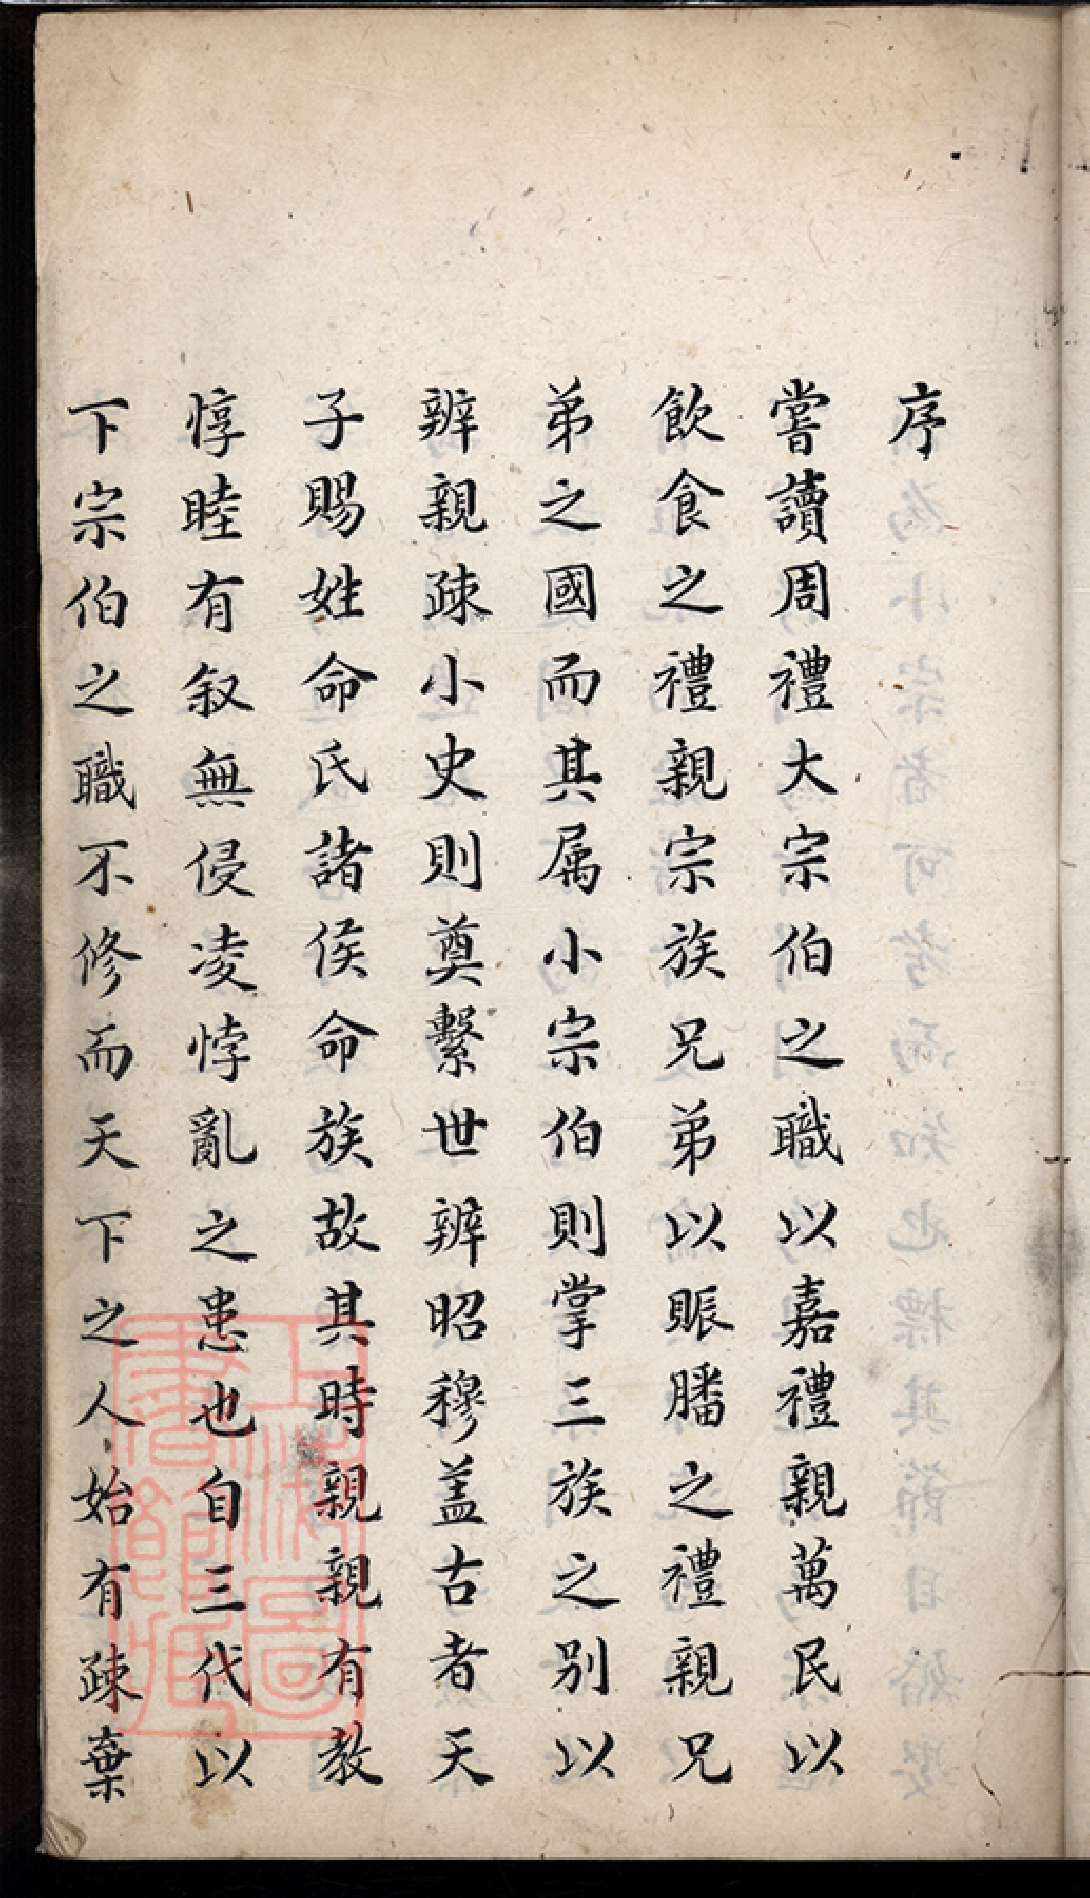 序
嘗讀周禮大宗伯之職以嘉禮親萬民以
飲食之禮親宗族兄弟以賑膰之禮親兄
弟之國而其属小宗伯則掌三族之別以
辨親疎小史則奠繫世辨昭穆盖古者天
子賜姓命氏諸侯命族故其時親親有教
惇睦有叙無侵凌悖亂之患也自三代以
下宗伯之職不修而天下之人始有疎棄
上海圖書館藏